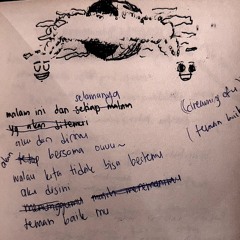 selamanya
malam ini dan setiap malam
yg akan ditemui
aku dan dirimu
dan tetap bersama ouuu~
walau kita tidak bisa bertemu
aku disini
menunggumu masih menemanimu
teman baik mu
(teman baik